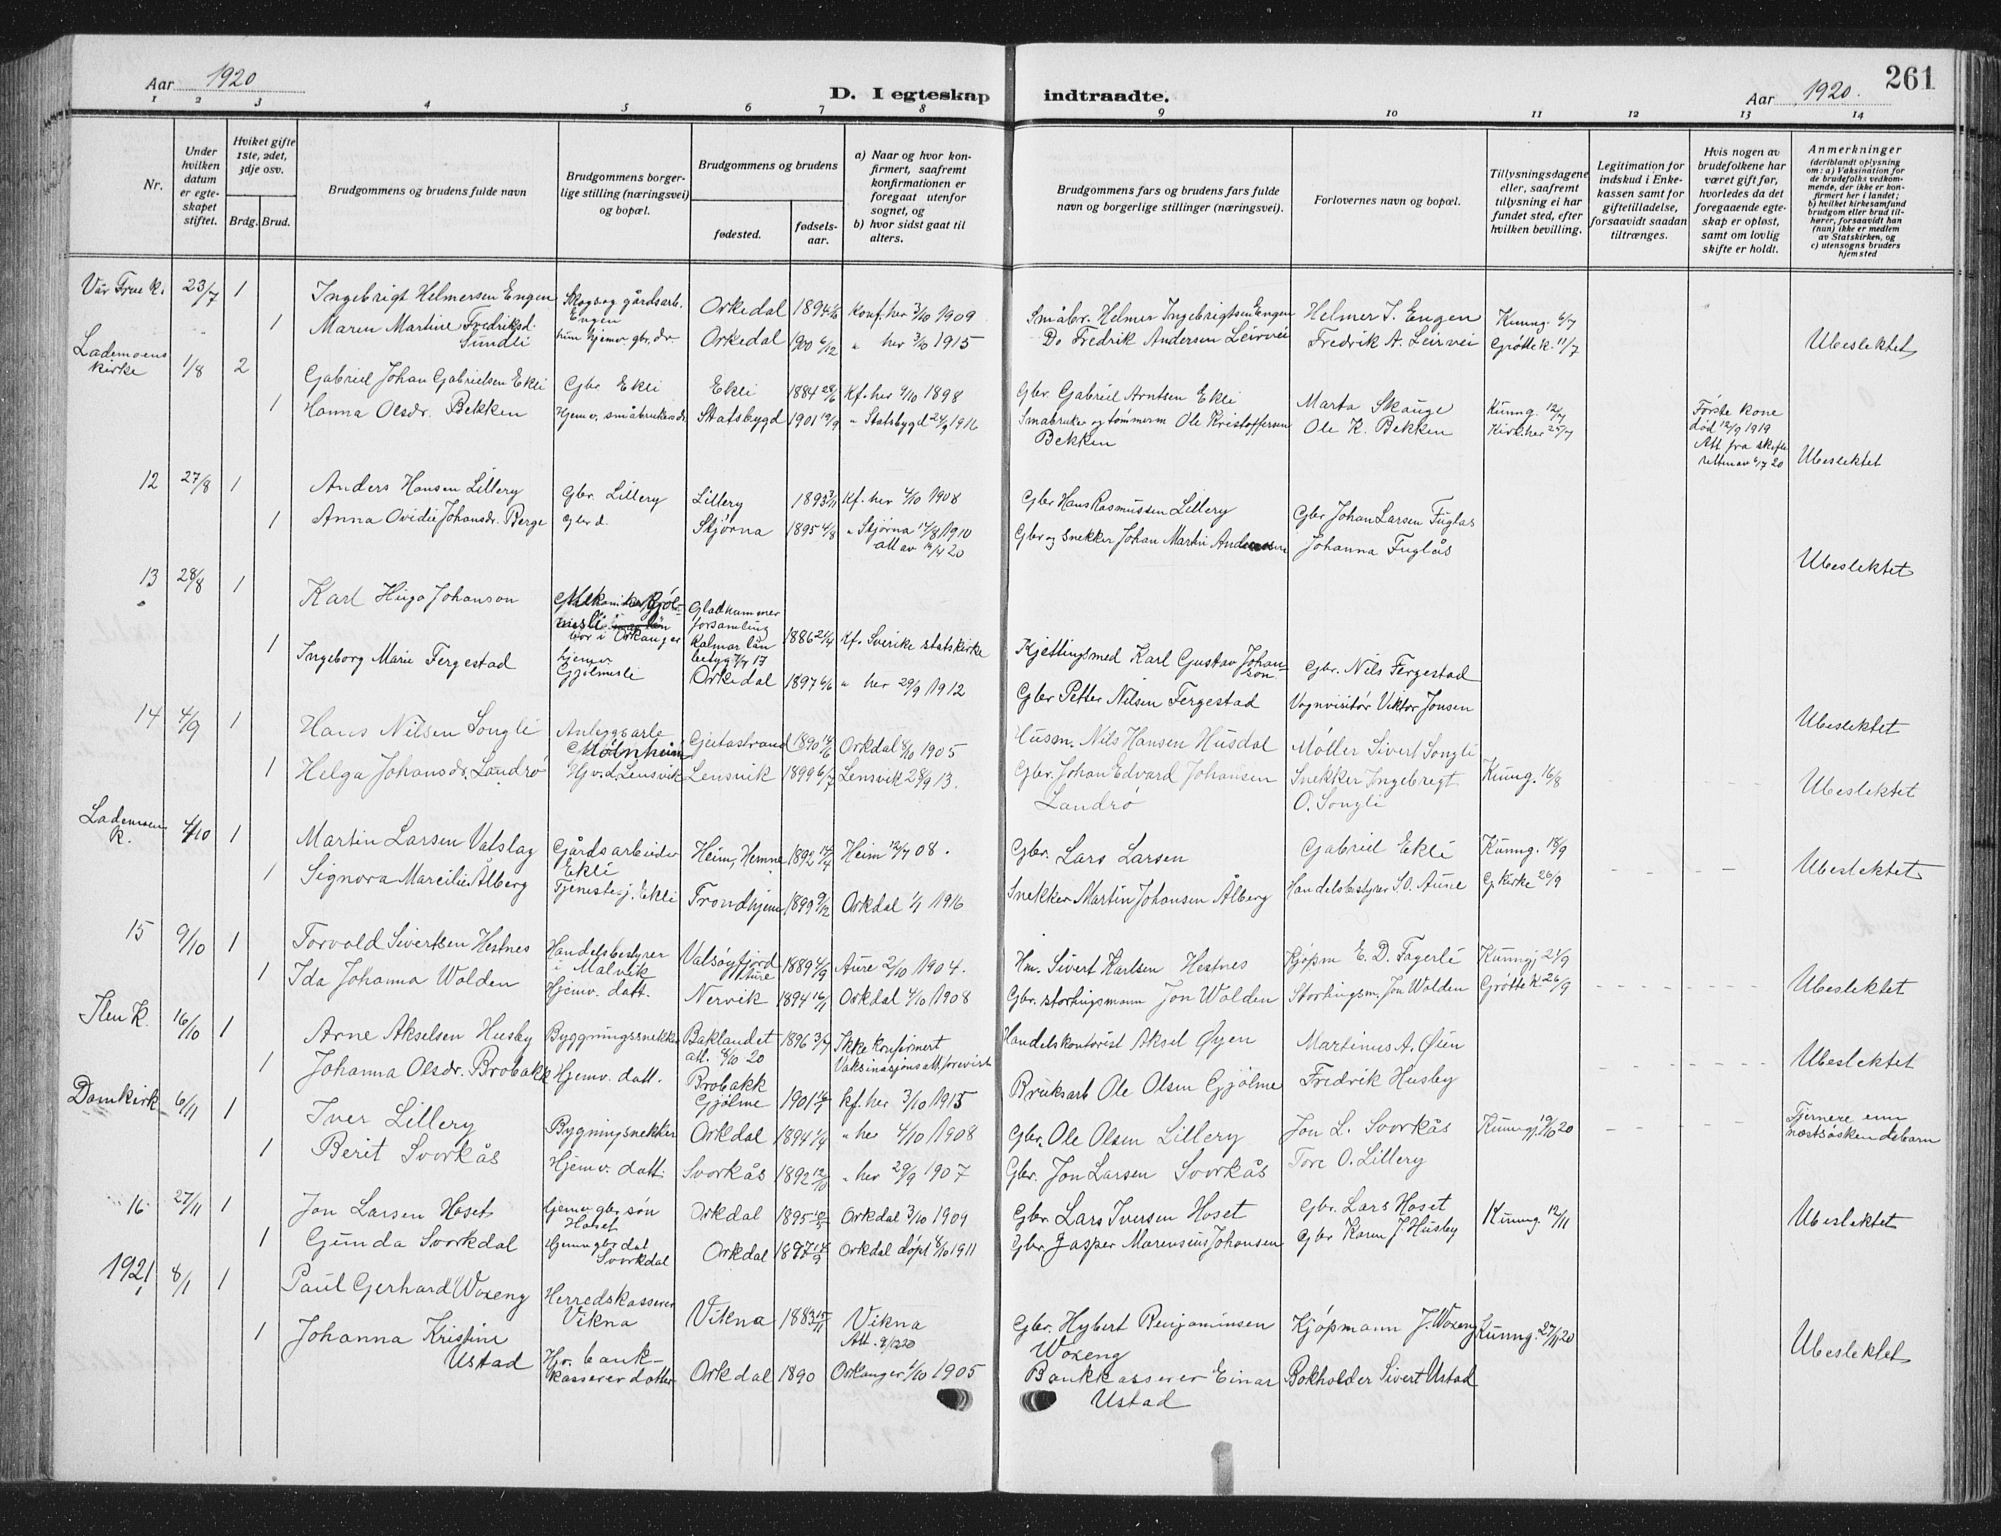 Aar 1920
D. I egteskap indtraadte.
Aar 1920.
261
1 2 3 4 5 6 7 8 9 10 11 12 13 14
Nr.
Under hvilken datum er egteskapet stiftet.
Hvilket gifte 1ste, 2det, 3dje osv.
Brdg. Brud.
Brudgommens og brudens fulde navn
Brudgommens borgerlige stilling (næringsvei) og bopæl.
Brudgommens og brudens
fødested.
fødselsaar.
a) Naar og hvor konfirmert, saafremt konfirmationen er foregaat utenfor sognet, og
b) hvor sidst gaat til alters.
Brudgommens fars og brudens fars fulde navn og borgerlige stillinger (næringsvei).
Forlovernes navn og bopæl.
Tillysningsdagene eller, saafremt tillysning ei har fundet sted, efter hvilken bevilling.
Legitimation for indskud i Enkekassen samt for giftetilladelse, forsaavidt saadan tiltrænges.
Hvis nogen av brudefolkene har været gift før, hvorledes da det foregaaende egteskap er opløst, samt om lovlig skifte er holdt.
Anmerkninger (deriblandt oplysning om: a) Vaksination for de brudefolks vedkommende, der ikke er konfirmert her i landet; b) hvilket kirkesamfund brudgom eller brud tilhører, forsaavidt han (hun) ikke er medlem av Statskirken, og c) utensogns bruders hjemsted
Vår Frue k. 23/7 1 Ingebrigt Helmersen Engen Skogs og gårdsarb. Engen Orkedal 1894 Konf. her 3/10 1909 Småbr. Helmer Ingebrigtsen Engen Helmer I. Engen Kunng. 6/7
1 Maren Martine Fredriksd. Sundli hun hjemv. gbr. dr. Orkedal 1900 6/12 " her 3/10 1915 Do Fredrik Andersen Leirvei Fredrik A. Leirvei Grøtte k. 11/7 Ubeslektet
Lademoens kirke 1/8 2 Gabriel Johan Gabrielsen Ekli Gbr Ekli Ekli 1884 28/6 Kf. her 9/10 1898 Gbr Gabriel Arntsen Ekli Marta Skauge Kunng. 12/7 Første kone død 12/9 1919 Att fra skifteretten av 6/7 20
1 Hanna Olsdr. Bekken Hjemv. småbrukerdr. Statsbygd 1901 19/9 " Statsbygd 24/9 1916 Småbruker og tømmerm Ole Kristoffersen Bekken Ole K. Bekken Kirk. her 25/7 Ubeslektet
12 27/8 1 Anders Hansen Lillery Gbr. Lillery Lillery 1893 3/11 Kf. her 4/10 1908 Gbr Hans Rasmussen Lillery Gbr Johan Larsen Fuglås
1 Anna Ovidie Johansdr. Berge Gbr d. Stjørna 1895 4/8 " Stjørna 14/8 1910 att av 14/4 20 Gbr og snekker Johan Martin Andersen Johanna Fuglås Ubeslektet
13 28/8 1 Karl Hugo Johanson Mekaniker Gjølmesli bor i Orkanger Gladhammer forsamling Kalmar län betyg 7/7 17 1886 21/4 Kf. Sverike statskirke Kjettingsmed Karl Gustav Johanson Gbr. Nils Fergestad
1 Ingeborg Marie Fergestad hjemv Gjølmesli Orkedal 1897 6/6 " her 29/9 1912 Gbr Petter Nilsen Fergestad Vognvisitør Viktor Jonsen Ubeslektet
14 4/9 1 Hans Nilsen Songli Anleggsarb. Mølnheim Geitastrand 1890 Orkdal 8/10 1905 Husm. Nils Hansen Husdal Møller Sivert Songli
1 Helga Johansdr. Landrø Hjv. d. Lensvik Lensvik 1899 6/7 Lensvik 28/9 13. Gbr. Johan Edvard Johansen Landrø Snekker Ingebrigt O. Songli Kunng. 16/8 Ubeslektet
Lademoen k. 4/10 1 Martin Larsen Vatslag Gårdsarbeider Ekli Heim, Hemne 1892 14/4 Heim 12/7 08. Gbr. Lars Larsen Gabriel Ekli Kunng. 18/9
1 Signora Marcilie Ålberg Tjenestej. Ekli Trondhjem 1899 9/12 Orkdal 1916 Snekker Martin Johansen Ålberg Handelsbestyrer S. O. Aune G. kirke 26/9 Ubeslektet
15 9/10 1 Torvald Sivertsen Hestnes Handelsbestyrer i Malvik Valsøyfjord Aure 1889 4/9 Aure 2/10 1904. Hm. Sivert Karlsen Hestnes Kjøpm E. D. Fagerli Kunngj 21/9
1 Ida Johanna Wolden Hjemv. datt. Nervik 1894 16/1 Orkdal 4/10 1908 Gbr. storthingsmann Jon Wolden Storthingsm. Jon Wolden Grøtte k. 26/9 Ubeslektet
Ilen K. 16/10 1 Arne Akselsen Husby Byggningssnekker Baklandet att. 8/10 20 1896 3/7 Ikke konfirmert Vaksinasjonsatt. forevist Handelskontorist Aksel Øyen Martinus A. Øien
1 Johanna Olsdr. Brobakk Hjemv. datt. Brobakk Gjølme 1901 kf. her 3/10 1915 Bruksarb Ole Olsen Gjølme Fredrik Husby Ubeslektet
Domkirk 6/11 1 Iver Lillery Bygningsnekker Orkdal 1894 1/4 " her 4/10 1908 Gbr. Ole Olsen Lillery Jon L. Svorkås Kunngj. 19/10 20 Fjernere enn næstsøskendebarn
1 Berit Svorkås Hjemv. datt. Svorkås 1892 12/10 " her 29/9 1907 Gbr. Jon Larsen Svorkås Tore O. Lillery
16 27/11 1 Jon Larsen Hoset hjemv. gbr søn Hoset Orkdal 1895 Orkdal 3/10 1909 Gbr. Lars Iversen Hoset Gbr. Lars Hoset Kunng. 12/11
1 Gunda Svorkdal Hjemv gbr dat Svorkdal Orkdal 1897 Orkdal døpt 8/10 1911 Gbr. Jasper Marensius Johansen Gbr Karen J. Husby Ubeslektet
1921 8/1 1 Paul Gerhard Woxeng Herredskasserer Vikna Vikna 1883 15/11 Vikna Att. 9/12 20 Gbr. Hybert Benjaminsen Woxeng Kjøpmann J. Woxeng Kunng. 27/11 20
1 Johanna Kristine Ustad Hjv. bankkasserer datter Orkdal 1890 Orkanger 1/10 1905 Bankkasserer Einar Ustad Bokholder Sivert Ustad Ubeslektet